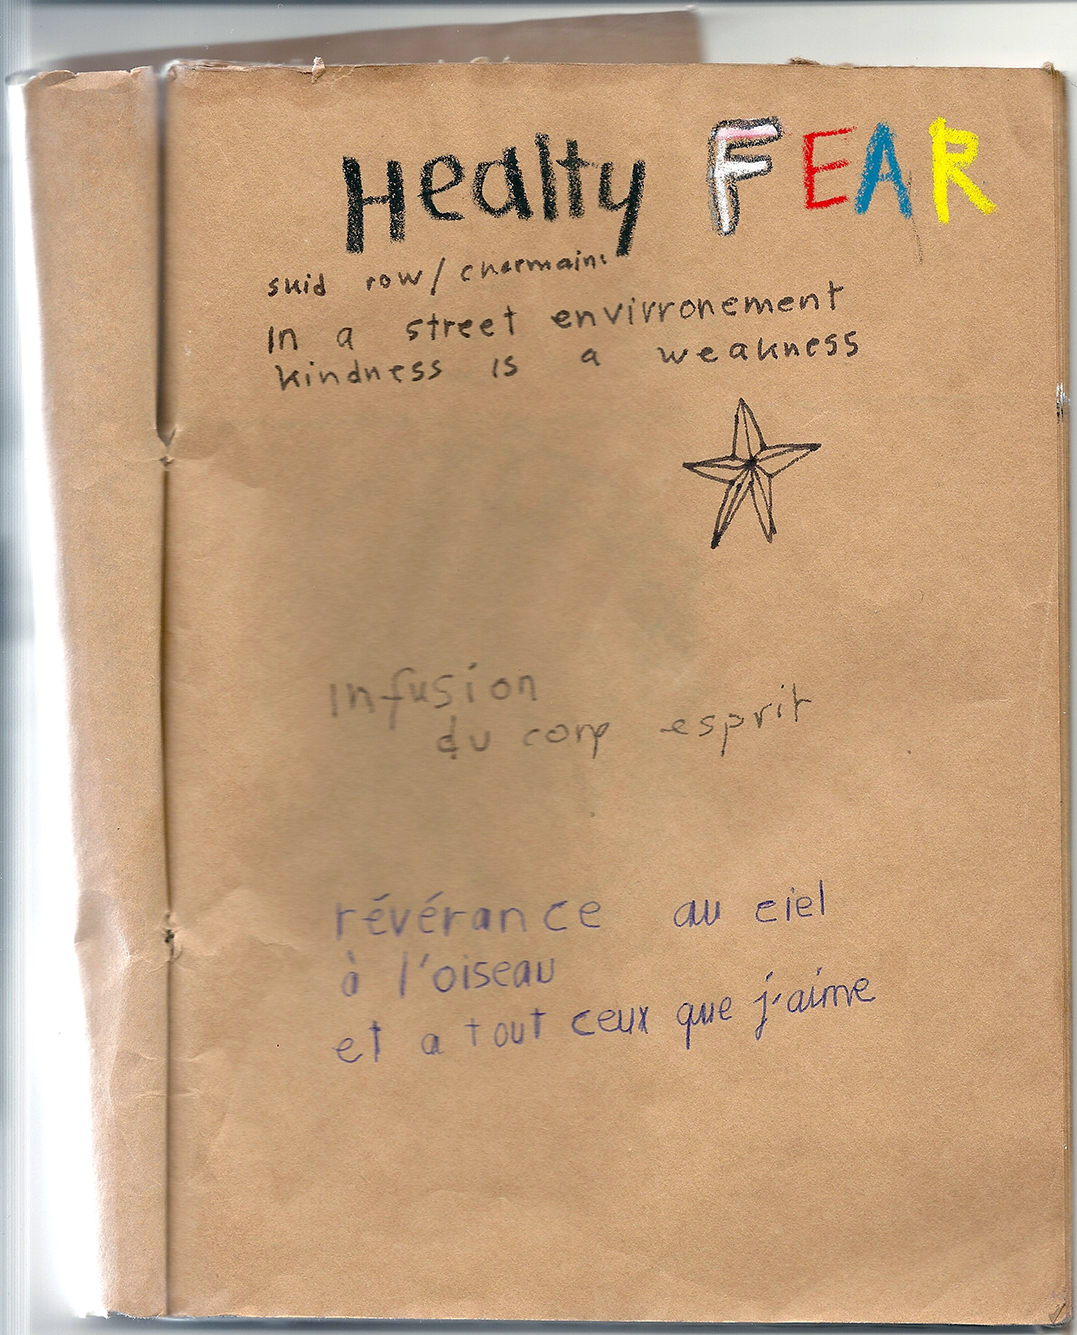 Healty FEAR
suid row/charmain:
In a street envirronement
kindness is a weakness
Infusion
du corp esprit
révérance au ciel
à l'oiseau
et a tout ceux que j'aime